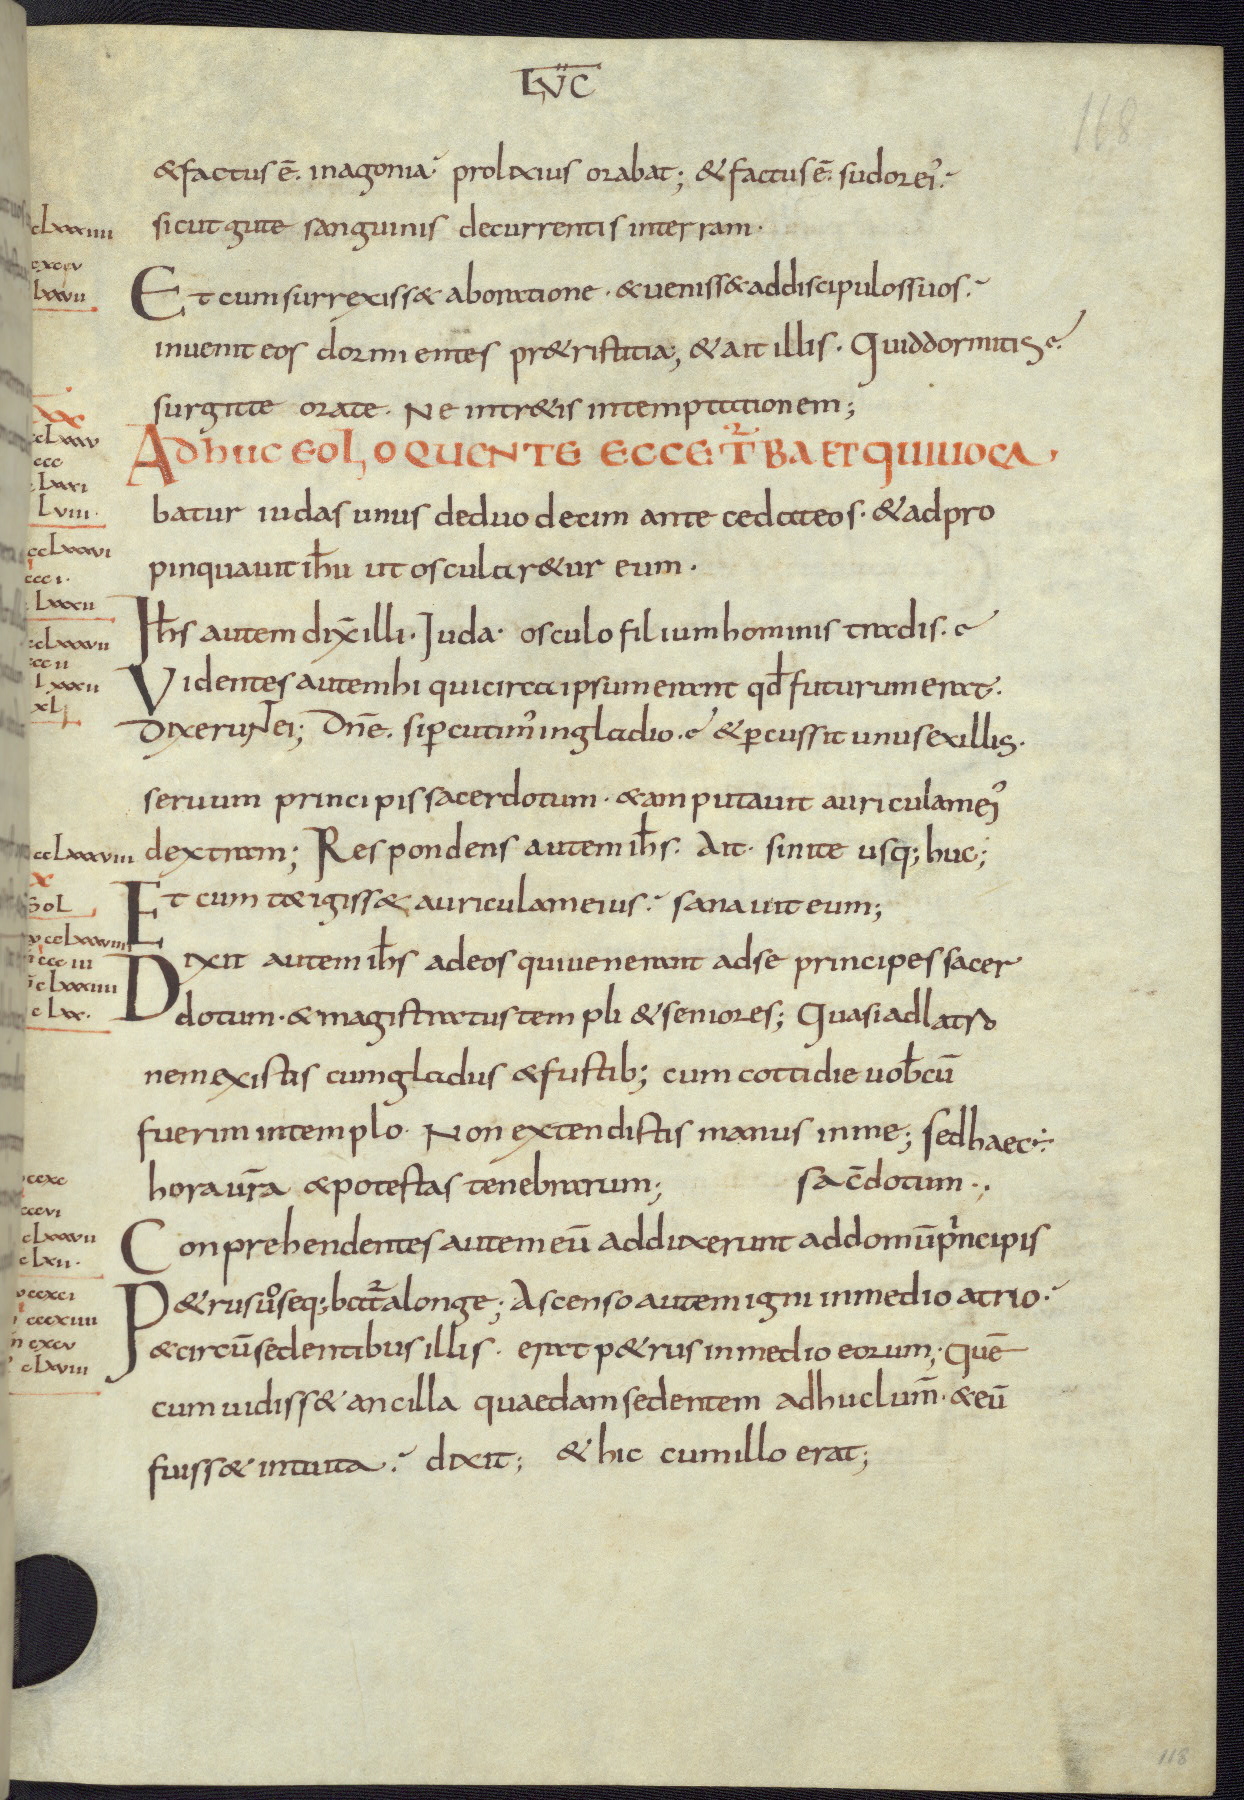 LVC
168
& factus ē. in agonia. prolixius orabat; & factus ē. sudor ei᾽.
sicut gute sanguinis decurrentis in terram.
Et cum surrexiss& ab oratione. &ueniss& ad discipulos suos.
inuenit eos dormientes pr& ristitia; & ait illis. Quid dormitis.
surgite orate. Ne intr&is in temptationem;
Adhuc eo loquente ecce t̄ba et qui uoca
batur iudas unus de duodecim antecedat eos. & adpro
pinquauit ih̄u ut oscular&ur eum.
Ih̄s autem dix̄ illi. Juda. osculo filium hominis tradis.
Videntes autem hi qui circa ipsum erant qd̄ futurum erat.
Dixerunt ei; Dn̄e. si p̄cutim᾽ in gladio. & p̄cussit unus ex illis.
seruum principis sacerdotum. & amputauit auriculam ei᾽
dextram; Respondens autem ih̄s. Ait. sinite usq; huc;
Et cum t&igiss& auriculam eius. sanauit eum;
Dixit autem ih̄s ad eos qui uenerant ad se principes sacer
dotum. & magistratus templi & seniores; Quasi ad latro
nem existis cum gladius & fustib; cum cottidie uob̄cū
fuerim in templo. Non extendistis manus in me; sed haec ÷
hora ur̄a & potestas tenebrarum; sac̄dotum.
Conprehendentes autem eū adduxerunt ad domū pⁱncipis
P&rus u᷎o seq;bat̄ a longe; Ascenso autem igni in medio atrio.
& circū sedentibus illis. erat p&rus in medio eorum; Quē
cum uidiss& ancilla quaedam sedentem ad huc lum̄. & eū
fuiss& intuita. dixit; & hic cum illo erat;
118